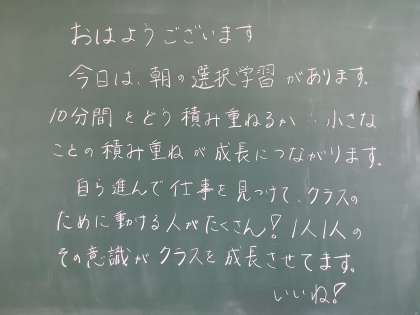 おはようございます
今日は、朝の選択学習があります。
10分間をどう積み重ねるか…小さな
ことの積み重ねが成長につながります。
自ら進んで仕事を見つけて、クラスの
ために動ける人がたくさん！1人1人の
その意識がクラスを成長させてます。
いいね！